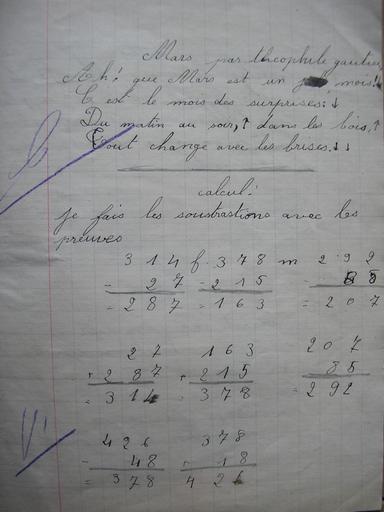 Mars par théophile gautier
Ah! que Mars est un joli mois!
C est le mois des surprises: ↓
Du matin au soir, ↑ dans les bois, ↑
Tout change avec les brises. ↓↓
calcul:
je fais les soustrastions avec les
preuves
314 f. 378 m 292
- 27 - 215 - 85
= 287 = 163 = 207
27 163 207
+ 287 + 215 85
= 314 = 378 292
426 378
- 48 + 18
= 378 426